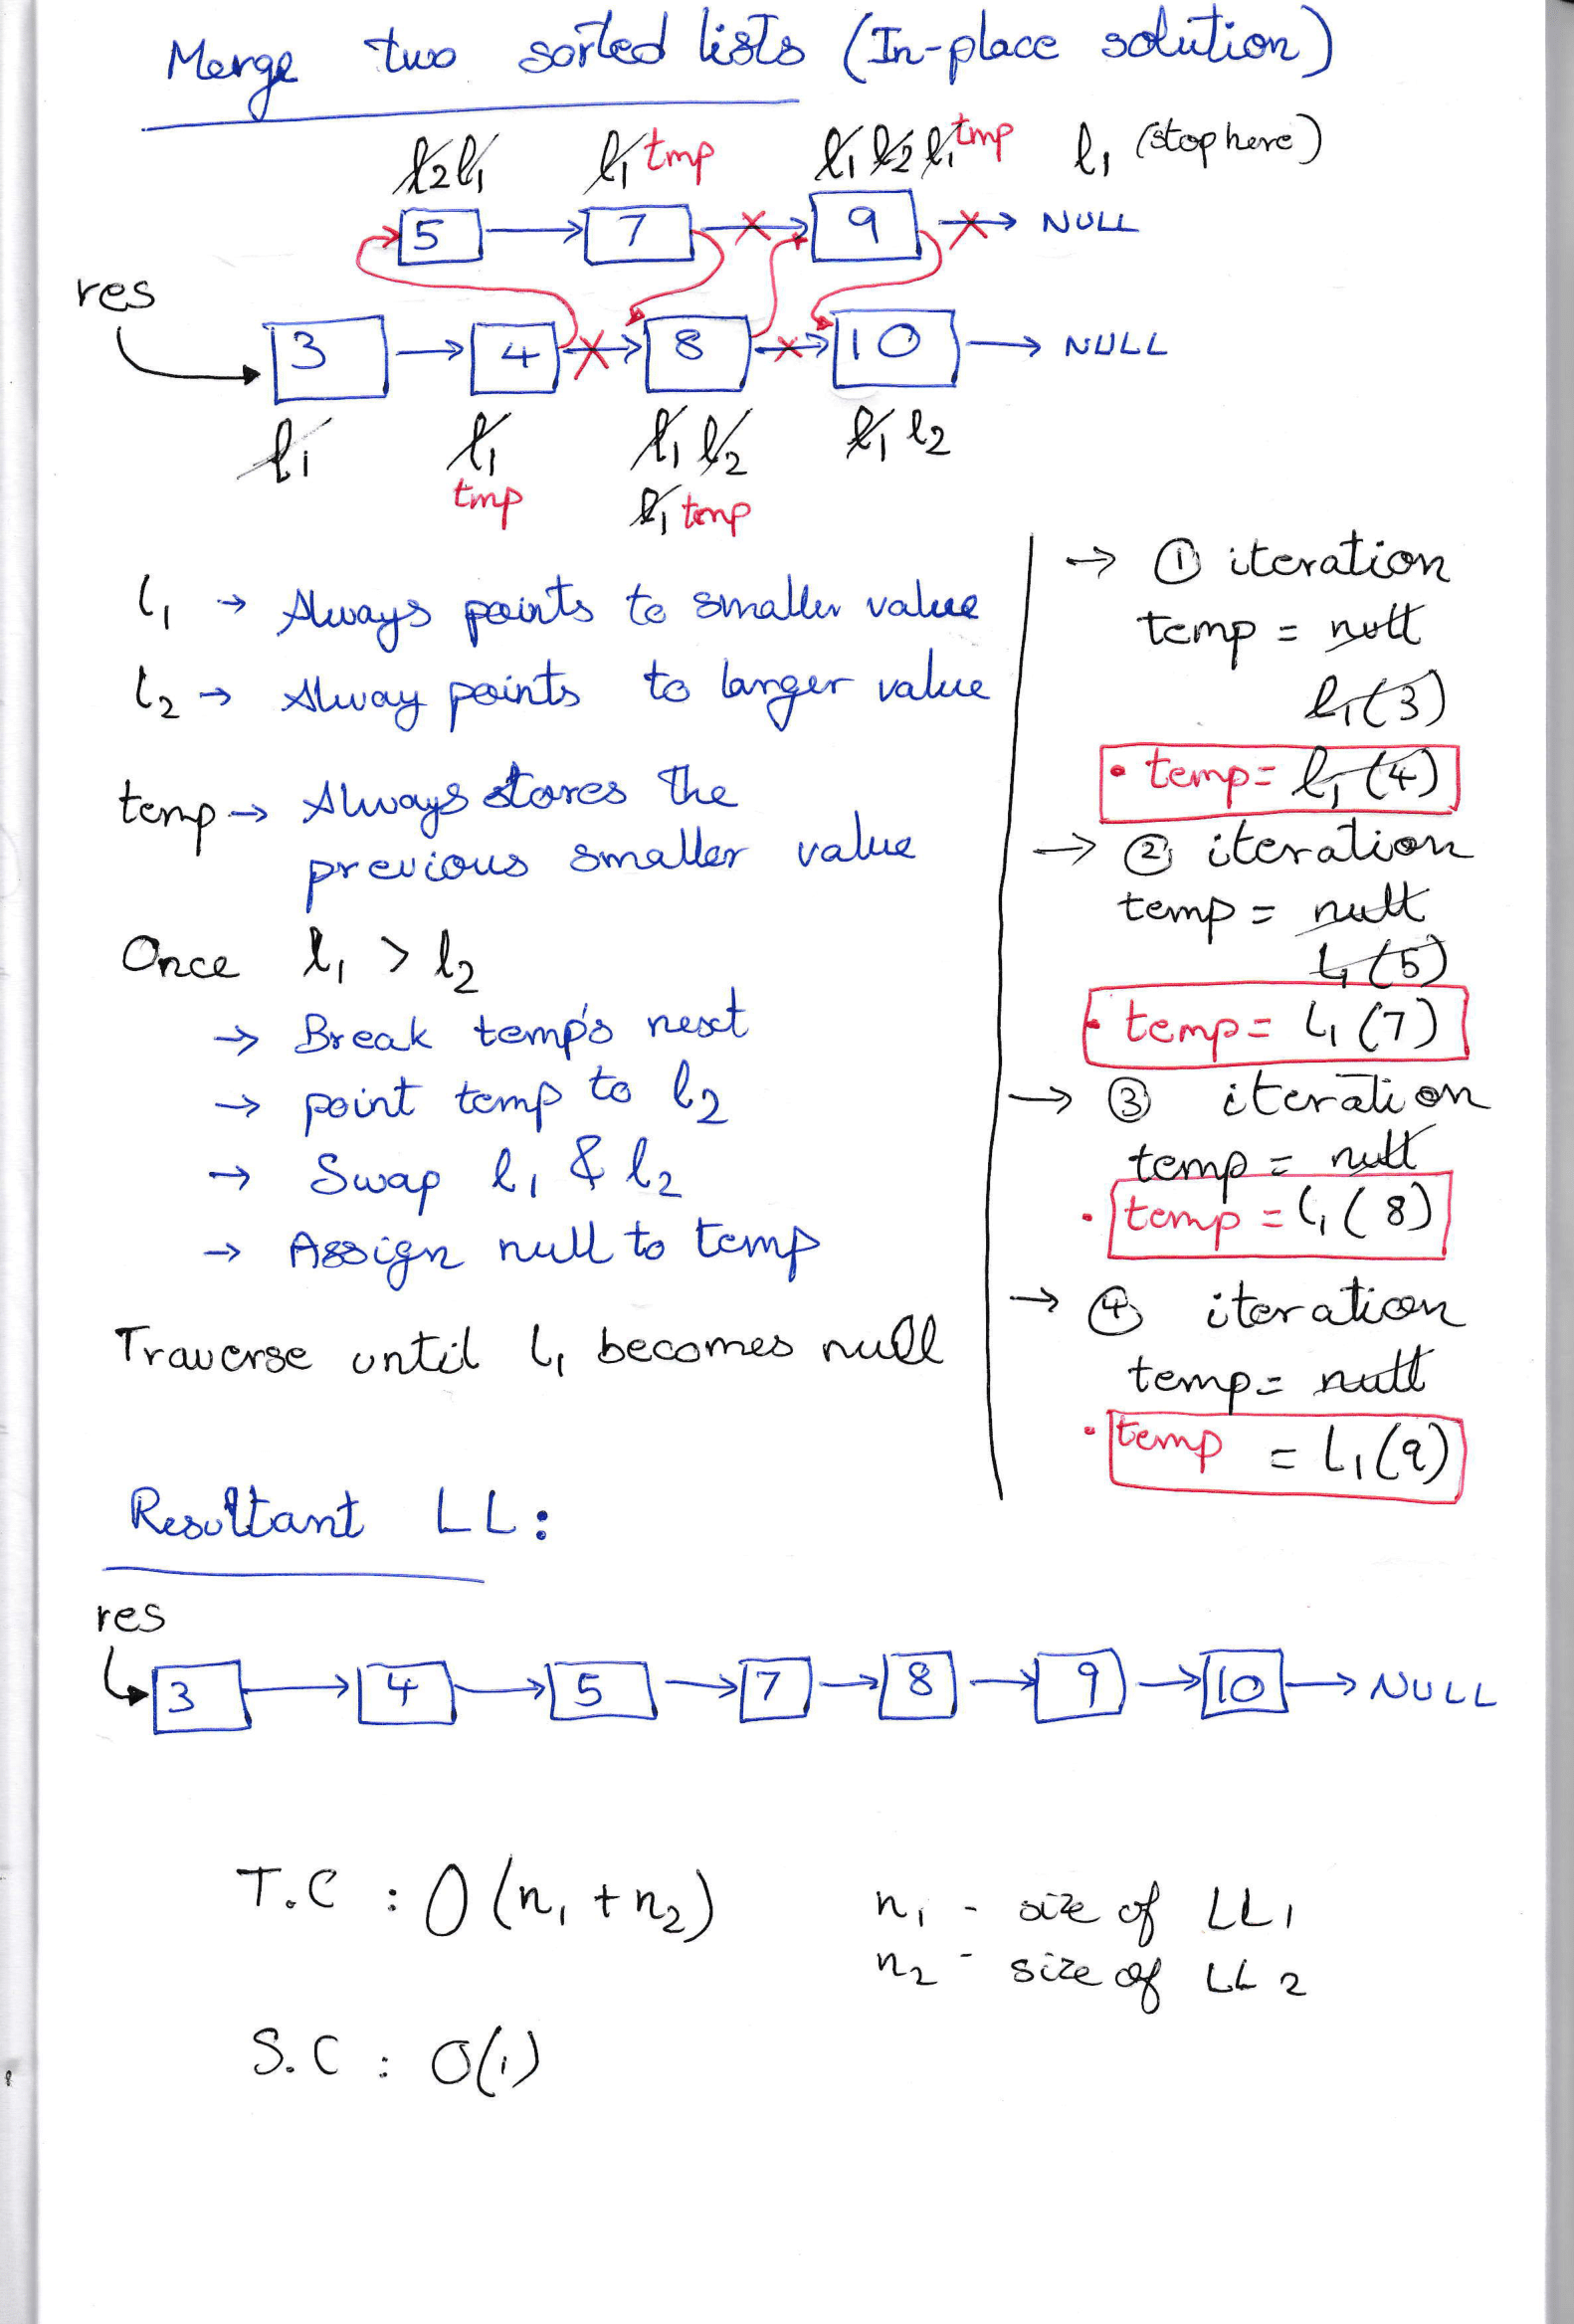 Merge two sorted lists (In-place solution)
l2 l1 l1 tmp l1 l2 l1 tmp l1 (stop here)
5 7 9 NULL
res
3 4 8 10 NULL
l1 l1 l1 l2 l1 l2
tmp l1 temp
l1 → Always points to smaller value
l2 → Alway points to larger value
temp → Always stores the
previous smaller value
Once l1 > l2
→ Break temp's next
→ point temp to l2
→ Swap l1 & l2
→ Assign null to temp
Traverse until l1 becomes null
→ ① iteration
temp = null
l1(3)
• temp = l1(4)
→ ② iteration
temp = null
l1(5)
• temp = l1(7)
→ ③ iteration
temp = null
• temp = l1(8)
→ ④ iteration
temp = null
• temp = l1(9)
Resultant LL:
res
3 → 4 → 5 → 7 → 8 → 9 → 10 → NULL
T.C : O(n1 + n2) n1 - size of LL1
n2 - size of LL2
S.C : O(1)